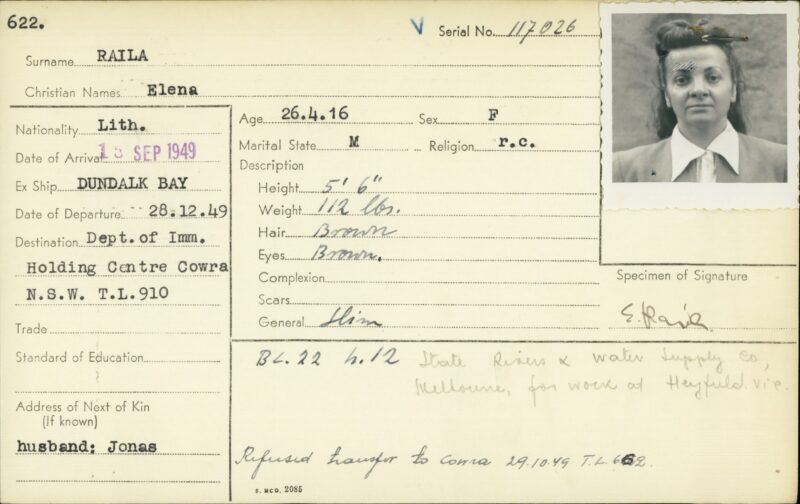 622.
V
Serial No. 117026
Surname RAILA
Christian Names Elena
Nationality Lith.
Date of Arrival 13 SEP 1949
Ex Ship DUNDALK BAY
Date of Departure 28.12.49
Destination Dept. of Imm.
Holding Centre Cowra
N.S.W. T.L.910
Trade
Standard of Education
Address of Next of Kin
(If known)
husband: Jonas
Age 26.4.16 Sex F
Marital State M Religion r.c.
Description
Height 5' 6"
Weight 112 lbs.
Hair Brown
Eyes Brown.
Complexion
Scars
General Slim
Specimen of Signature
E. Raila
BL.22 h.12 State Rivers & Water Supply Co,
Melbourne, for work at Heyfield. Vic.
Refused transfer to Cowra 29.10.49 T.L 662.
S. MCD. 2085